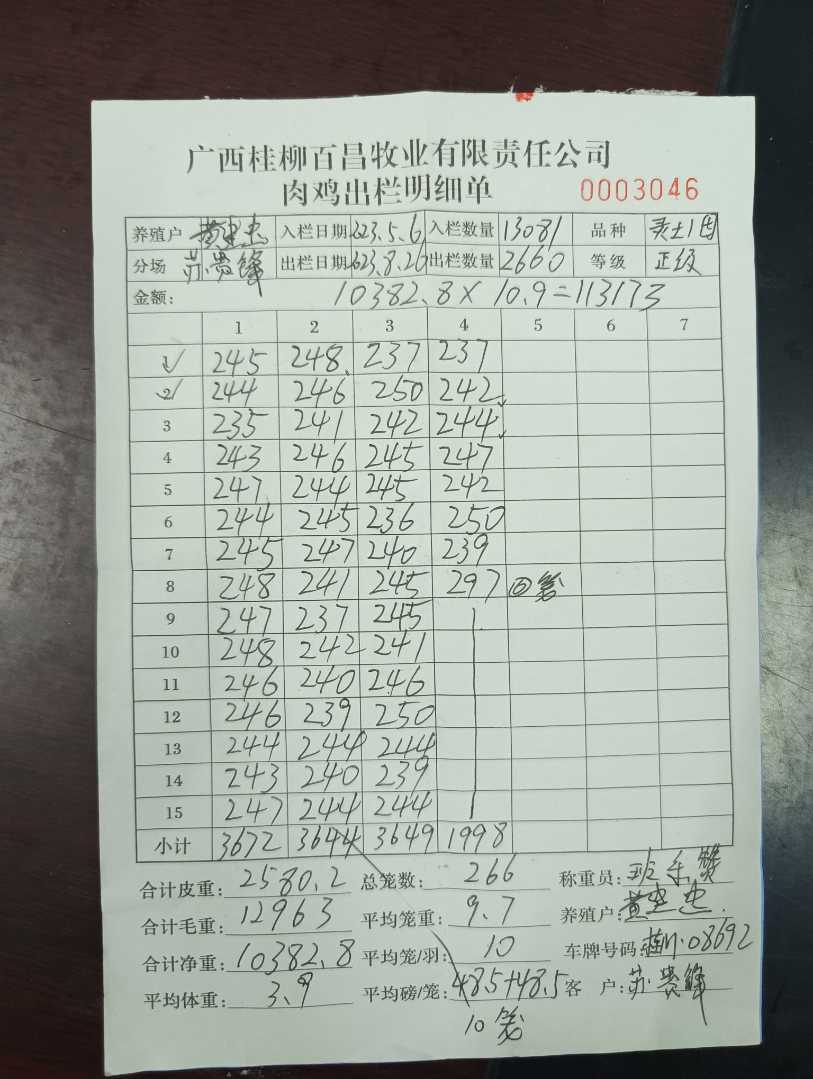 广西桂柳百昌牧业有限责任公司
肉鸡出栏明细单 0003046
养殖户 入栏日期 2023.5.6 入栏数量 13081 品种
分场 苏贵锋 出栏日期 2023.8.26 出栏数量 2660 等级 正级
金额: 10382.8×10.9=113173
1 2 3 4 5 6 7
1 245 248 237 237
2 244 246 250 242
3 235 241 242 244
4 243 246 245 247
5 247 244 245 242
6 244 245 236 250
7 245 247 240 239
8 248 241 245 297 ⑥笼
9 247 237 245
10 248 242 241
11 246 240 246
12 246 239 250
13 244 244 244
14 243 240 239
15 247 244 244
小计 3672 3644 3649 1998
合计皮重: 2580.2 总笼数: 266 称重员:
合计毛重: 12963 平均笼重: 9.7 养殖户:
合计净重: 10382.8 平均笼/羽: 10 车牌号码: 08692
平均体重: 3.9 平均磅/笼: 48.5+48.5 客 户: 苏贵锋
10笼